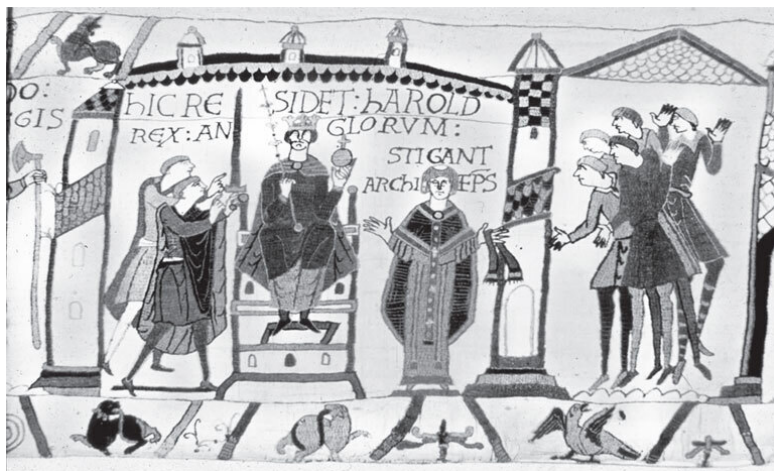 DO:
GIS
hIC RE SIDET: hAROLD
REX: AN GLORVM:
STIGANT
ARChI EPS